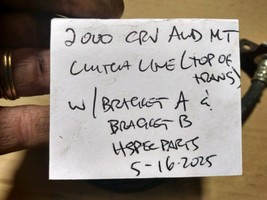 2000 CRV AWD MT
CLUTCH LINE (TOP OF
TRANS)
W/ BRACKET A &
BRACKET B
HSPEC PARTS
5-16-2025